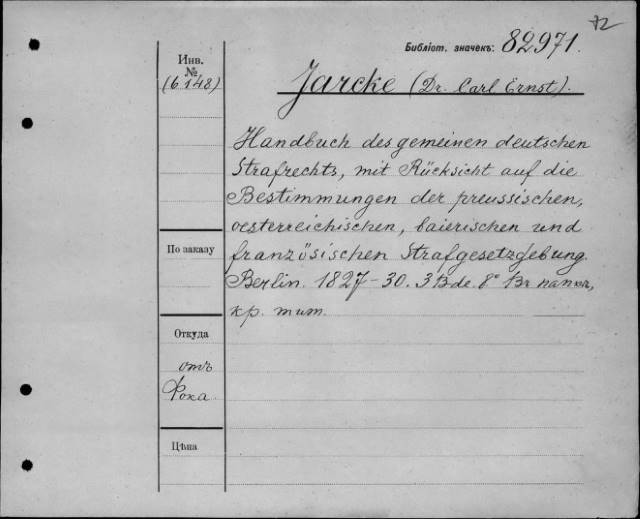 72
Библіот. значекъ: 82971.
Инв.
№
(6148)
Jarcke (Dr. Carl Ernst).
Handbuch des gemeinen deutschen
Strafrechts, mit Rücksicht auf die
Bestimmungen der preussischen,
oesterreichischen, baierischen und
französischen Strafgesetzgebung.
Berlin. 1827-30. 3 Bde. 8°
кр. тит.
По заказу
Откуда
отъ
Фока
Цѣна